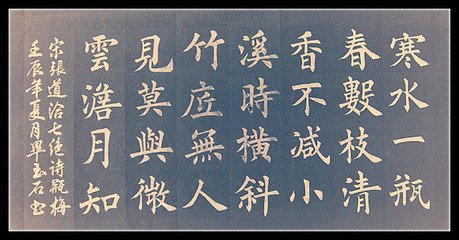 寒水一瓶
春數枝清
香不減小
溪時橫斜
竹底無人
見莫與微
雲澹月知
宋張道洽七絕詩瓶梅
壬辰年夏月畢玉石書